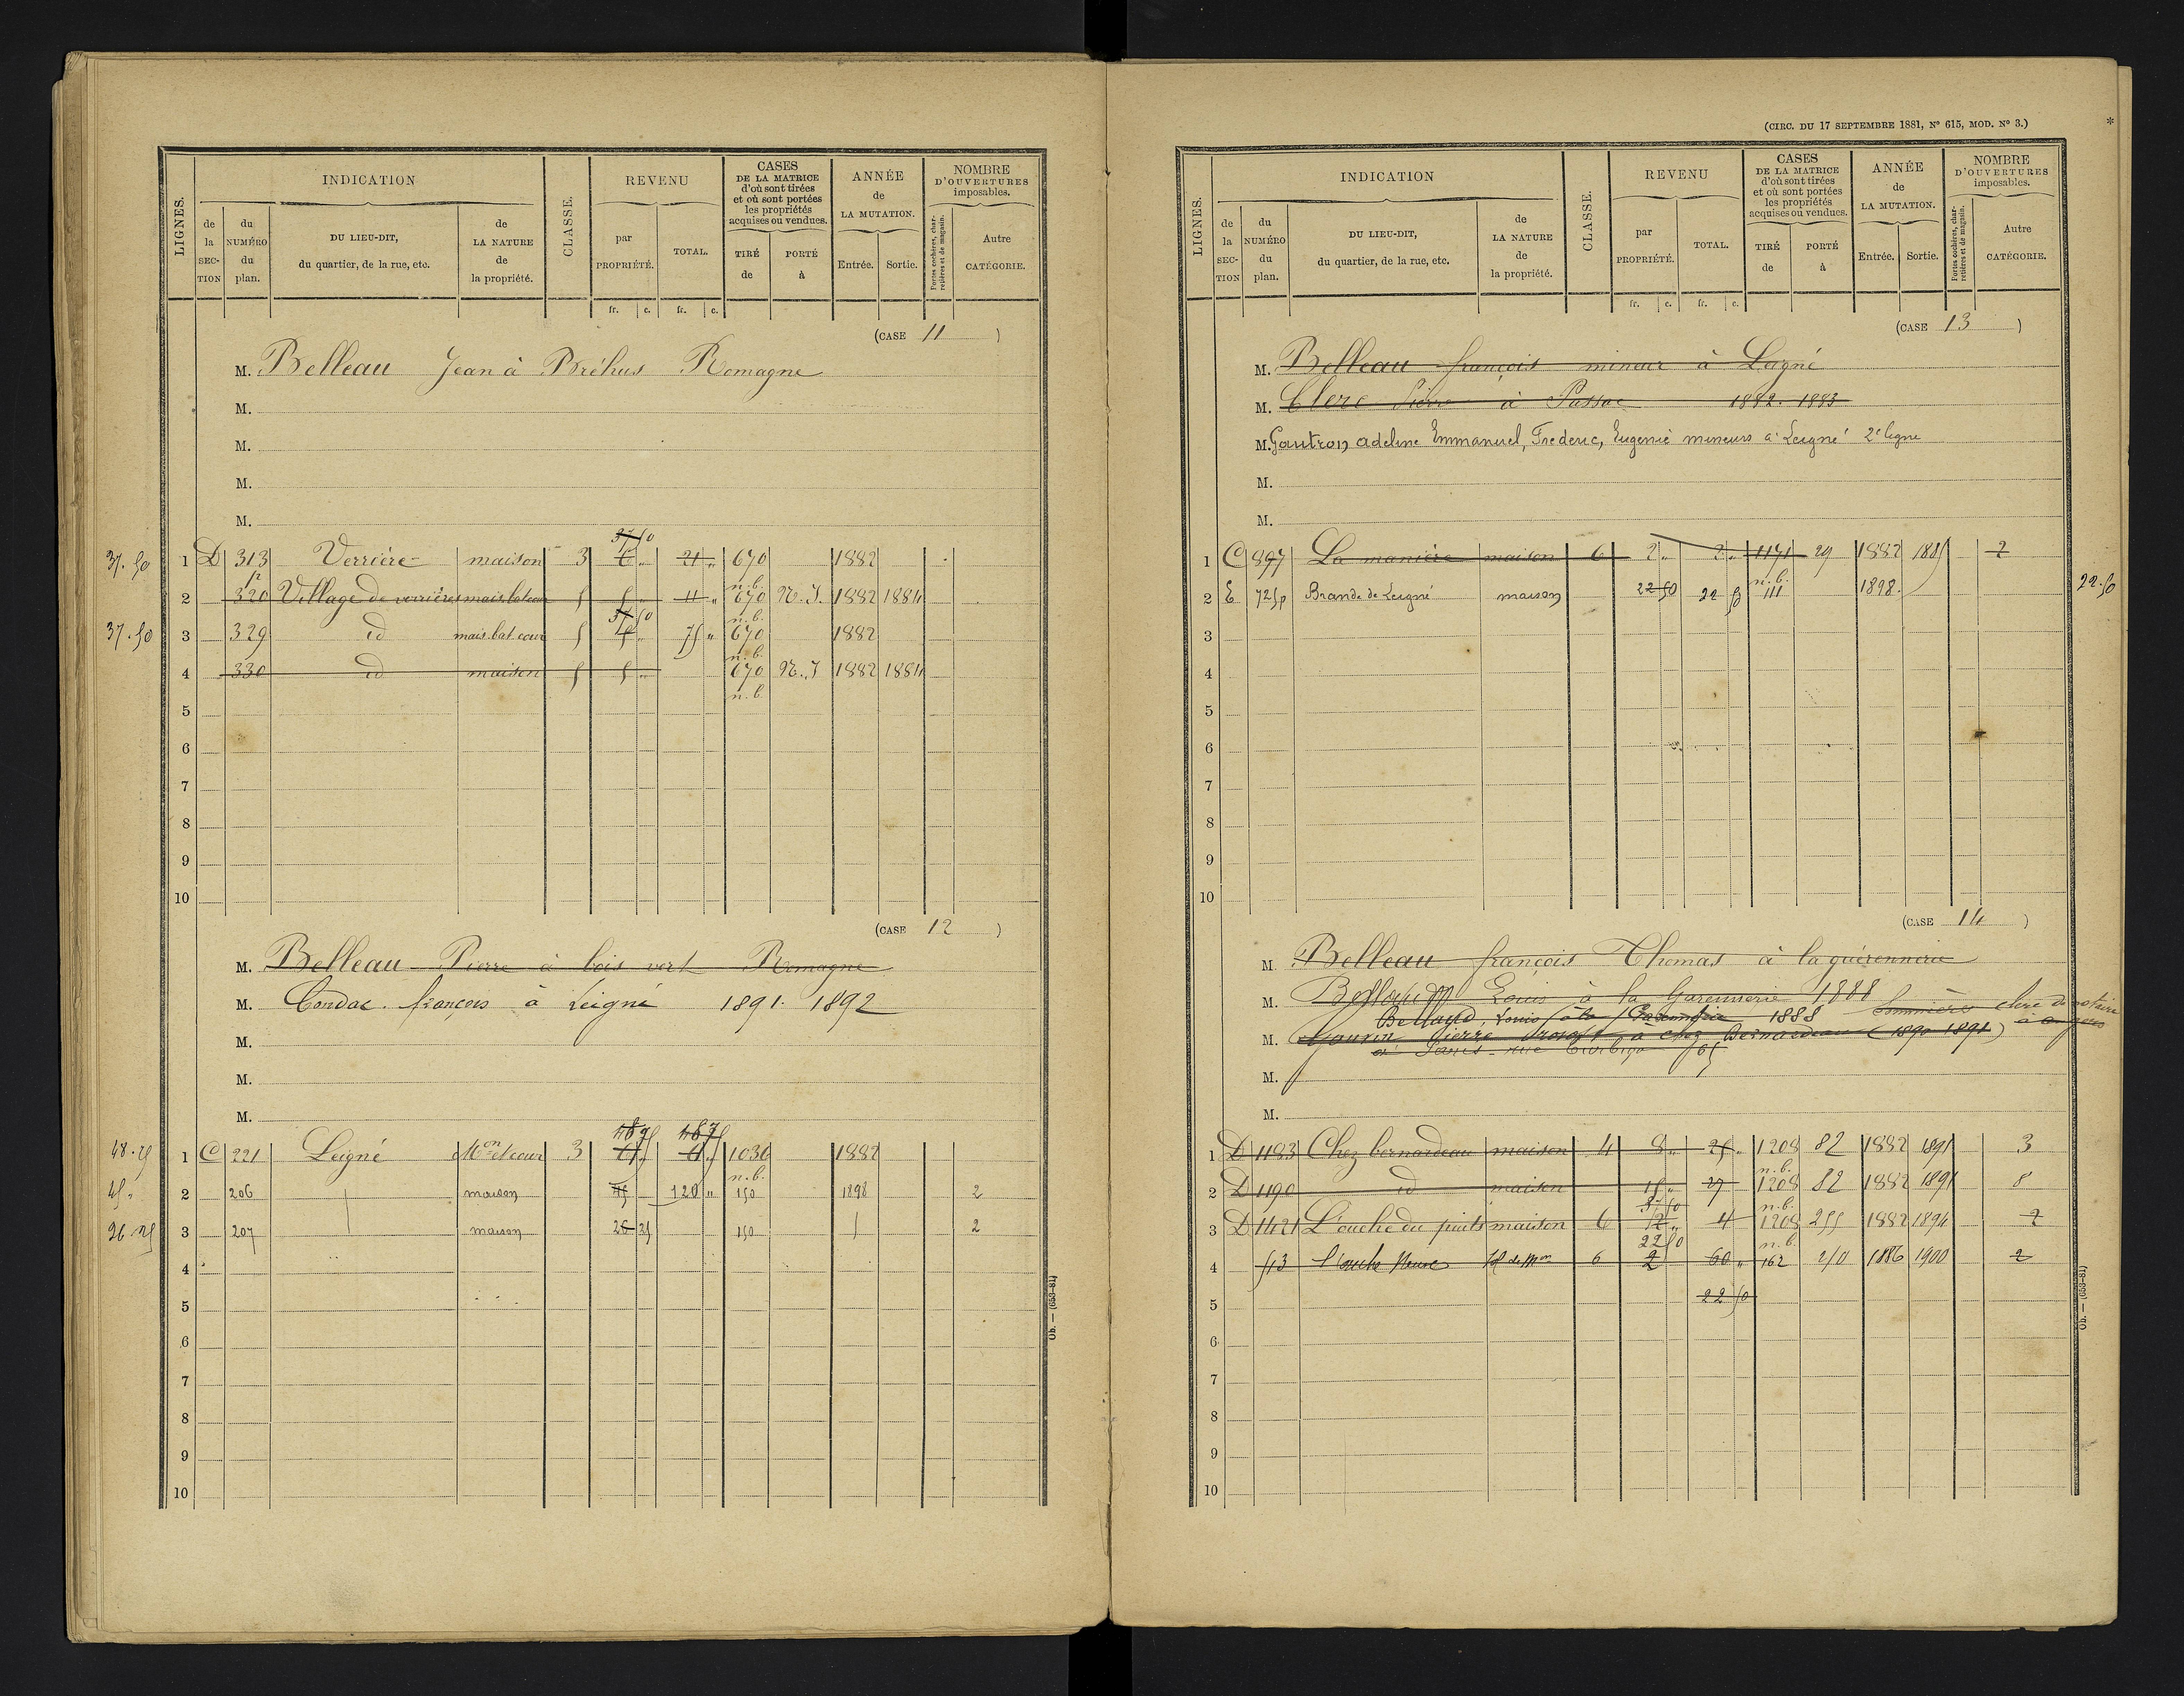 LIGNES.
INDICATION
de la SECTION
du NUMÉRO du plan.
DU LIEU-DIT, du quartier, de la rue, etc.
de LA NATURE de la propriété.
CLASSE.
REVENU
par PROPRIÉTÉ.
TOTAL.
CASES DE LA MATRICE d'où sont tirées et où sont portées les propriétés acquises ou vendues.
TIRÉ de
PORTÉ à
ANNÉE de LA MUTATION.
Entrée.
Sortie.
NOMBRE D'OUVERTURES imposables.
Portes cochères, charretières et de magasin.
Autre CATÉGORIE.
fr. c. fr. c.
(CASE 11)
M. Belleau Jean à Bréhus Romagne
M.
M.
M.
M.
37 50
37.50 1 D 313 Verrière maison 3 6 " 21 " 670 1882
n.b.
2 320 Village de verrières mais. bat. cour 5 5 " 11 " 670 N.I. 1882 1884
37 50 n.b.
37.50 3 329 id mais. bat. cour 5 75 " 670 1882
n.b.
4 330 id maison 5 5 " 670 N.I 1882 1884
n.b.
5
6
7
8
9
10
(CASE 12)
M. Belleau Pierre à bois vert Romagne
M. Condac françois à Leigné 1891. 1892
M.
M.
M.
48 75 48 75
48.75 1 C 221 Leigné Mon et cour 3 1036 1882
n.b.
45 " 2 206 maison 45 120 " 150 1898 2
26.25 3 207 maison 26 25 150 2
4
5
6
7
8
9
10
Ob. — (653-81)
(CIRC. DU 17 SEPTEMBRE 1881, No 615, MOD. No 3.)
*
LIGNES.
INDICATION
de la SECTION
du NUMÉRO du plan.
DU LIEU-DIT, du quartier, de la rue, etc.
de LA NATURE de la propriété.
CLASSE.
REVENU
par PROPRIÉTÉ.
TOTAL.
CASES DE LA MATRICE d'où sont tirées et où sont portées les propriétés acquises ou vendues.
TIRÉ de
PORTÉ à
ANNÉE de LA MUTATION.
Entrée.
Sortie.
NOMBRE D'OUVERTURES imposables.
Portes cochères, charretières et de magasin.
Autre CATÉGORIE.
fr. c. fr. c.
(CASE 13)
M. Belleau françois mineur à Leigné
M. Clerc Pierre à Passac 1882. 1883
M. Gautron adeline Emmanuel, Frederic, Eugenie mineurs a Leigné 2e ligne
M.
M.
1 C 897 La manière maison 6 2 " 2 " 1171 29 1882 1885 2
n.b.
2 E 725p Brande de Leigné maison 22 50 22 50 111 1898 22.50
3
4
5
6
7
8
9
10
(CASE 14)
M. Belleau françois Thomas à la guérennerie
M. Louis à la Garennerie 1888
Bellaud, Louis à la 1888 Sommières clerc de notaire
M. Pierre à chez Bernardeau (1890 1891) à
à Paris rue 65
M.
M.
1 D 1183 Chez bernardeau maison 4 8 " 25 " 1208 82 1882 1891 3
n.b.
2 D 1190 id maison 15 " 27 1208 82 1882 1891 8
37 50 n.b.
3 D 1421 L'ouche du puits maison 6 12 " 4 1208 255 1882 1894 2
22 50 n.b.
4 513 6 2 60 " 162 250 1886 1900 2
5 22 50
6
7
8
9
10
Ob. — (653-81)